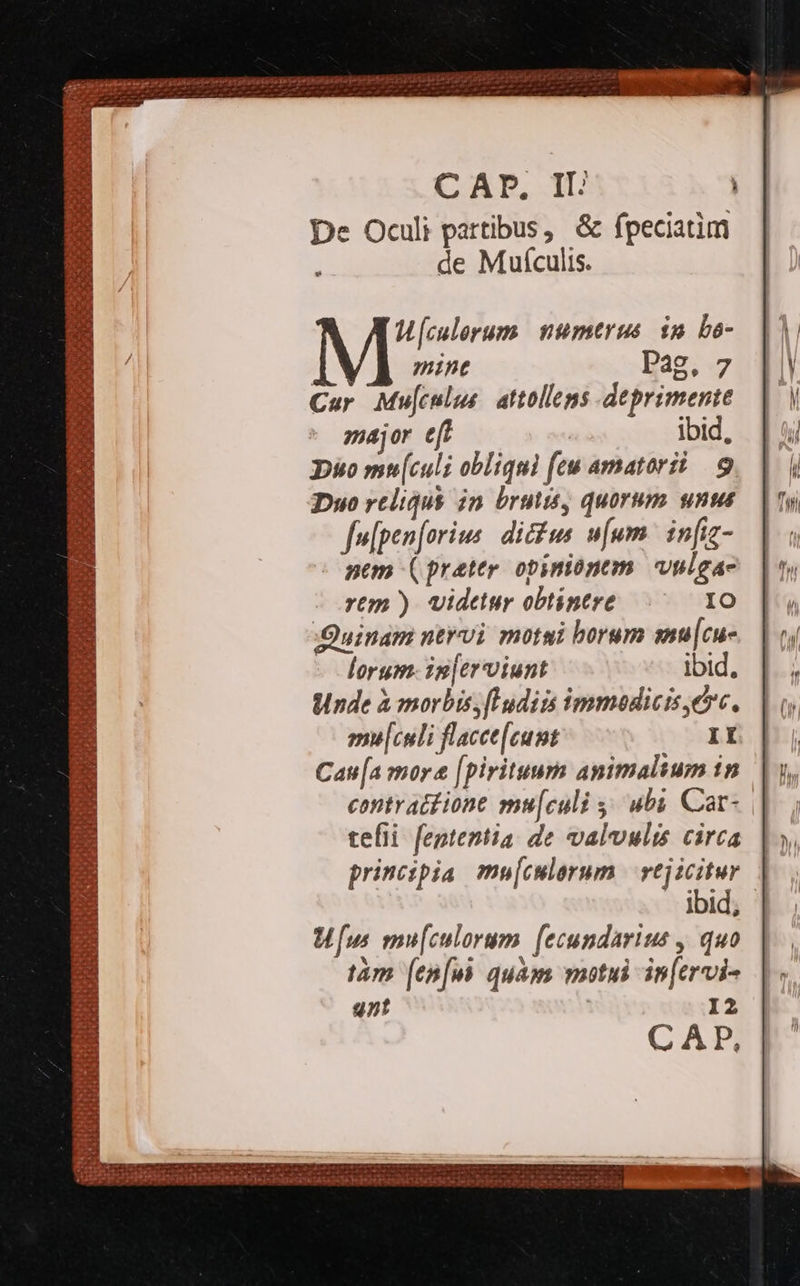 CAP. II.
De Oculi partibus, & ſpeciatim
de Muſculis.
MUſculorum numerus in ho-
mine Pag. 7
Cur Muſculus attollens deprimente
major eſt ibid.
Duo muſculi obliqui ſeu amatorii 9
Duo reliqui in brutis, quorum unus
ſuſpenſorius dictus uſum inſig-
nem (præter opinionem vulga-
rem) videtur obtinere 10
Quinam nervi motui horum muſcu-
lorum inſerviunt ibid.
Unde à morbis, ſtudiis immodicis, &c.
muſculi flacceſcunt 11
Cauſa moræ ſpirituum animalium in
contractione muſculi; ubi Car-
teſii ſententia de valvulis circa
principia muſculorum rejicitur
ibid.
Uſus muſculorum ſecundarius, quo
tàm ſenſui quàm motui inſervi-
unt 12
CAP.